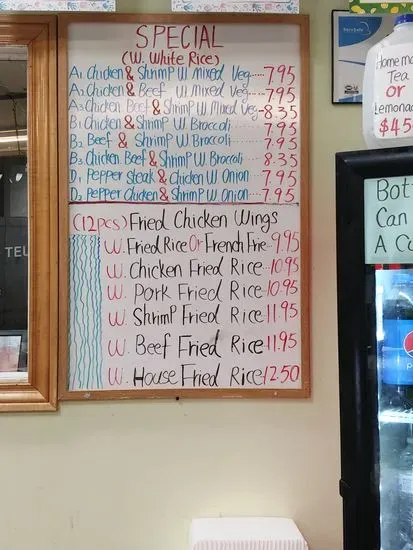 SPECIAL
(W. White Rice)
A1 Chicken & Shrimp W Mixed Veg 7.95
A2 Chicken & Beef W Mixed Veg 7.95
A3 Chicken Beef & Shrimp W Mixed Veg 8.35
B1 Chicken & Shrimp W Broccoli 7.95
B2 Beef & Shrimp W Broccoli 7.95
B3 Chicken Beef & Shrimp W Broccoli 8.35
D1 Pepper Steak & Chicken W Onion 7.95
D2 Pepper Chicken & Shrimp W Onion 7.95
(12pcs) Fried Chicken Wings
W. Fried Rice Or French Frie 9.95
W. Chicken Fried Rice 10.95
W. Pork Fried Rice 10.95
W. Shrimp Fried Rice 11.95
W. Beef Fried Rice 11.95
W. House Fried Rice 12.50
Homema
Tea
or
Lemonad
$4.5
Bot
Can
A C
TEL